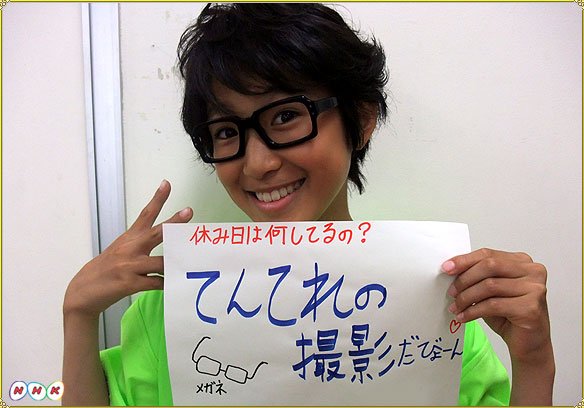 休み日は何してるの？
てんてれの
撮影だびょーん
メガネ
NHK